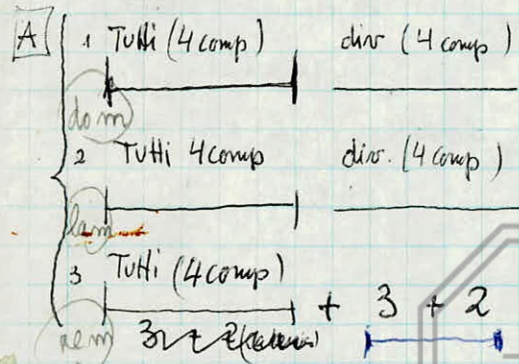 A 1 Tutti (4 comp) div (4 comps)
dom
2 Tutti 4 comp div. (4 comp)
lam
3 Tutti (4 comp)
+ 3 + 2
rem